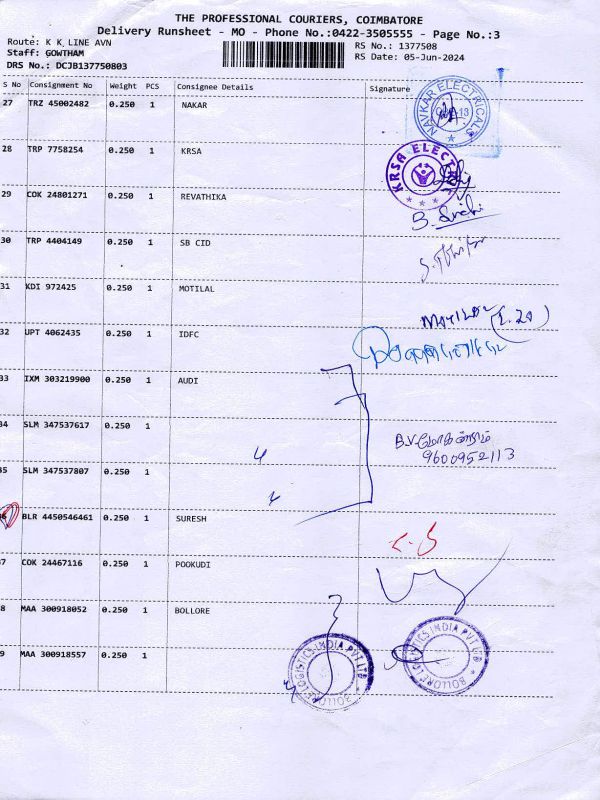 THE PROFESSIONAL COURIERS, COIMBATORE
Delivery Runsheet - MO - Phone No.:0422-3505555 - Page No.:3
Route: K K LINE AVN
Staff: GOWTHAM
DRS No.: DCJB137750803
RS No.: 1377508
RS Date: 05-Jun-2024
S No Consignment No Weight PCS Consignee Details Signature
27 TRZ 45002482 0.250 1 NAKAR
NAVKAR ELECTRICALS
28 TRP 7758254 0.250 1 KRSA
KRSA ELECT
29 COK 24801271 0.250 1 REVATHIKA
30 TRP 4404149 0.250 1 SB CID
31 KDI 972425 0.250 1 MOTILAL
32 UPT 4062435 1 IDFC
33 IXM 303219900 0.250 1 AUDI
34 SLM 347537617 0.250 1 4
B.V.மோகன்ராம்
9600952113
35 SLM 347537807 0.250 1 4
BLR 4450546461 0.250 1 SURESH
37 COK 24467116 0.250 1 POOKUDI
38 MAA 300918052 0.250 1 BOLLORE
39 MAA 300918557 0.250 1
BOLLORE LOGISTICS INDIA PVT LTD
BOLLORE LOGISTICS INDIA PVT LTD